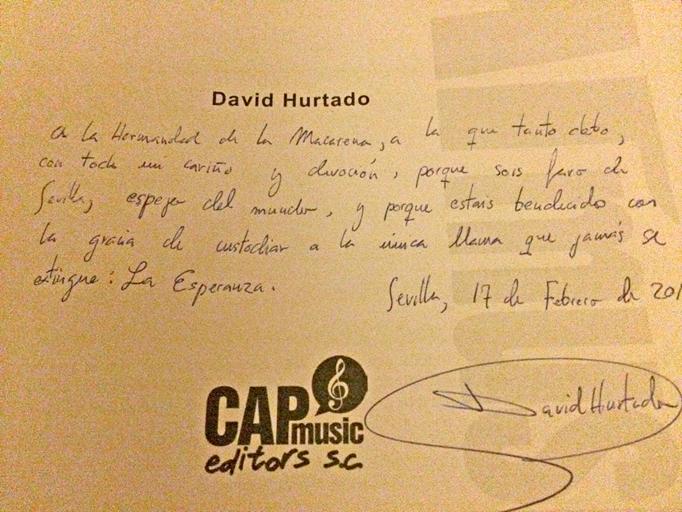 David Hurtado
A la Hermandad de la Macarena, a la que tanto debo,
con todo mi cariño y devoción, porque sois faro de
Sevilla, espejo del mundo, y porque estais bendecidos con
la gracia de custodiar a la única llama que jamás se
extingue: La Esperanza.
Sevilla, 17 de Febrero de 201
CAP
music
editors s.c.
David Hurtado